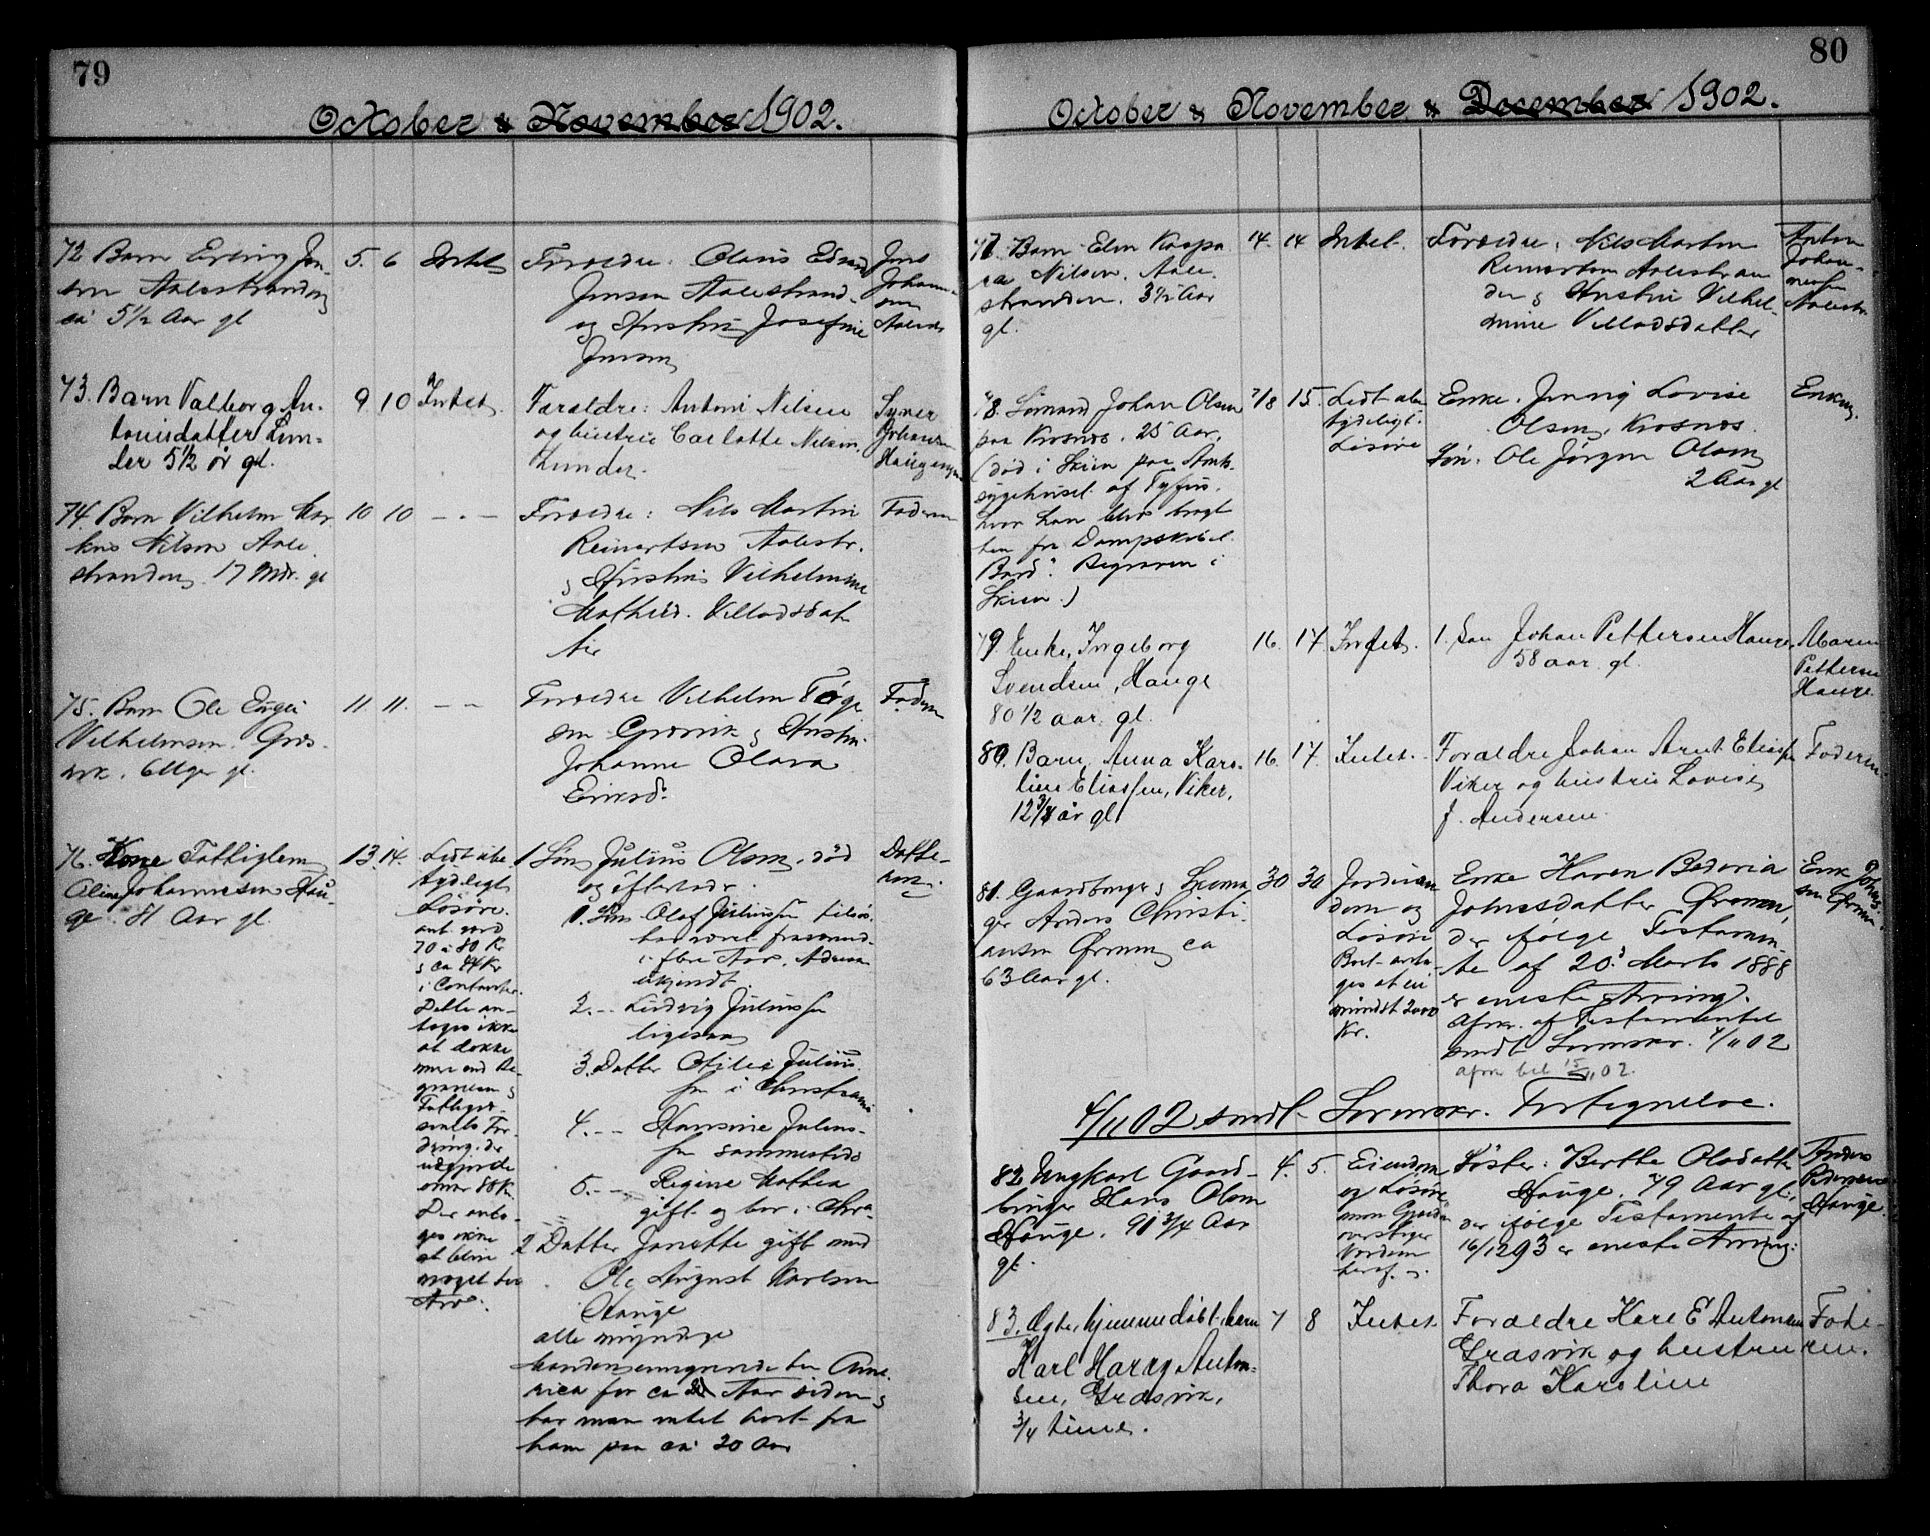 79
October & November 1902.
72 Barn Erling Jen-
sen Aalestranden
ca 5 1/2 Aar gl
5. 6 Intet
Forældre: Olaus Edvard
Jensen Aalestrand.
og Hustru Josefine
Jensen
Jens
Johanne-
sen
73. Barn Valborg An-
tonisdatter Lun-
der 5 1/2 år gl.
9 10 Intet.
Forældre: Antoni Nilsen
og hustru Carlotte Nilsen
Lunder.
Johansen
Haugengen
74. Barn Vilhelm Mar
kus Nilsen Aale
stranden 17 Mdr. gl
10 10 — . —
Forældre: Nils Martin
Reinertsen Aalestr.
& Hustru Vilhelmine
Mathild. Villadsdat
ter
Faderen
75. Barn Ole
Vilhelmsen. Græs-
vik. 6 Uger gl.
11. 11. — —
Forældre Vilhelm Børge
sen Græsvik & Hustru
Johanne Olava
Eriksd.
Faderen
76. Kone Fattiglem
Aline Johannesen Hau-
ge. 81 Aar gl.
13. 14. Lidt ube
tydeligt
Løsøre.
ant. værd
70 a 80 Kr
& ca 84 Kr
i Contanter.
Dette an-
tages ikke
at dække
mere end Be-
gravelsen &
Fattigvæ-
senets For-
dring. der
udgjorde
omtr 80 Kr.
Der anta-
ges ikke
at blive
noget til
Arv.
1 Søn Julius Olsen, død
og efterladt.
1. Søn Olaf Juliussen tilsøs.
har været fraværend-
i flere Aar. Adresse
ukjendt
2. — Ludvig Juliussen
ligesaa
3. Datter Otilie Julius-
sen i Christiania
4. — — Hansine Julius-
sen sammesteds
5. — — Regine Mathea
gift og bor i Chra-
2 Datter Janette gift med
Ole August Karlsen
Hauge
alle myndige
Manden emigrerede til Ame
rica for ca Aar siden &
har man intet hørt fra
ham paa ca 20 Aar
Datte-
ren.
80
October & November & December 1902.
77. Barn Elen Kaspa
ra Nilsen. Aale.
stranden. 3 1/2 Aar
gl.
14. 14 Intet.
Forældre: Nils Martin
Reinertsen Aalestran
den & Hustru Vilhel-
mine Villadsdatter
Anton
Johan-
nessen
Aalestr.
78. Sømand Johan Olsen
paa Krosnes. 25 Aar.
(død i Skien paa Amts-
sygehuset af Tyfus.
hvor han blev bragt
hen fra Dampskibet
Bard". Begraven i
Skien.)
7/8 15. Lidt ube
tydeligt.
Løsøre
Enke. Jenny Lovise
Olsen, Krosnes.
Søn. Ole Jørgen Olsen
2 Aar gl
Enken.
79 Enke, Ingeborg
Svendsen, Hauge
80 1/2 aar. gl.
16. 17. Intet.
1. Søn Johan Pettersen Hauge
58 aar gl.
Maren
Pettersen
Hauge.
80. Barn, Anna Karo-
line Eliassen, Viker,
12 3/4 år gl
16. 17. Intet.
Forældre Johan Arnt Eliassen
Viker og hustru Lovise
f. Andersen.
Faderen
81. Gaardbruger &
Anders Christi-
ansen Ørmen ca
63 Aar gl.
30 30 Jordeien
dom og
Løsøre
Boet anta-
ges at eie
mindst 2000
Kr.
Enke Maren Bedoria
Johnsdatter Ørmen,
der ifølge Testamen-
te af 20d Marts 1888
er eneste Arving.
Afskr. af Testamentet
sendt Sorenskr. 4/11 02
afskr bet 15/11 02.
Enken Johns-
Ørmen
4/11 02 sendt Sorenskr. Fortegnelse.
82 Ungkarl Gaard-
bruger Hans Olsen
Hauge. 91 3/4 Aar
gl.
4. 5. Eiendom
og Løsøre
men Gjælden
overstiger
Værdien
heraf.
Søster: Berthe Olsdatter
Hauge. 79 Aar gl.
der ifølge Testamente af
16/12 93 er eneste Arving.
Anders
Pedersen
Hauge.
83. Ægte, hjemmedøbt barn
Karl Harry Anton-
sen, Græsvik,
3/4 time.
7 8 Intet.
Forældre Karl E Antonsen
Græsvik og hustru
Thora Karoline
Fade-
ren.